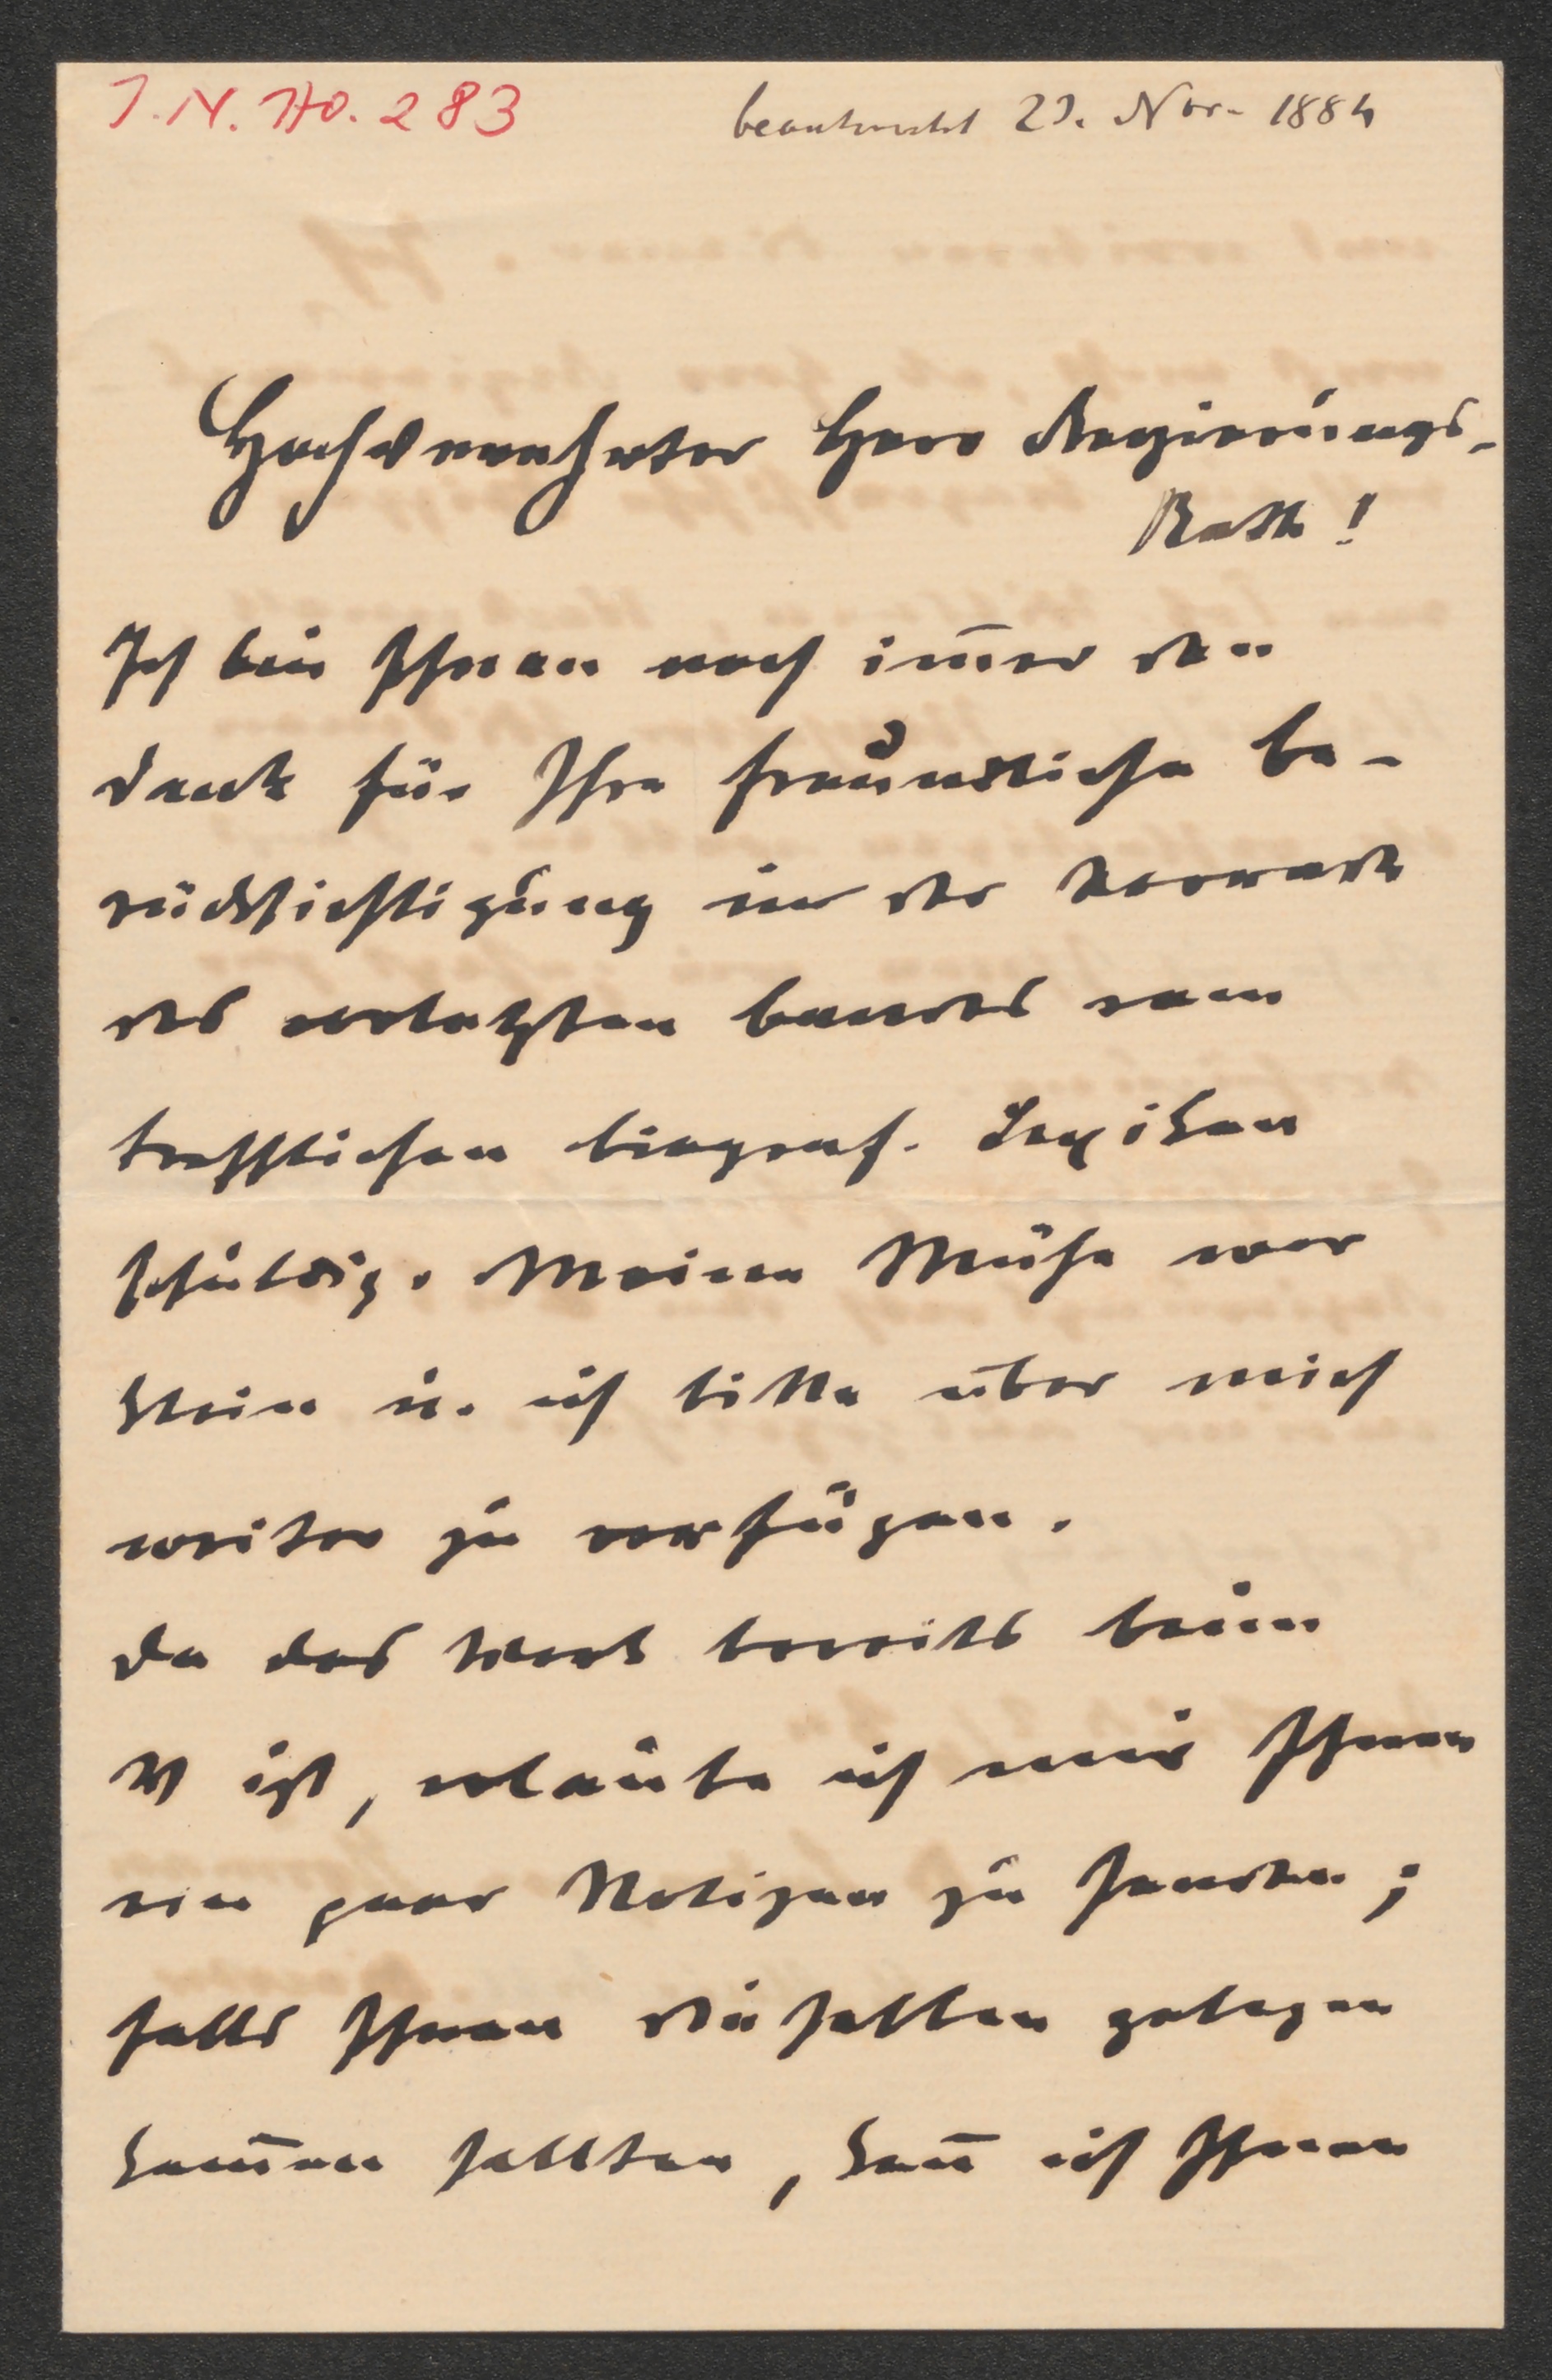 I.N. Ho. 283
beantwortet 23. Nov. 1884
Hochverehrter Herr Regierungs-
Rath!
Ich bin Ihnen noch im̅er den
Dank für Ihre freundliche Be-
rücksichtigung in der Vorrede
des vorletzten Bandes vom
trefflichen biograf. Lexikon
schuldig. Meine Mühe war
klein u. ich bitte über mich
weiter zu verfügen.
Da das Werk bereits beim
W ist, erlaube ich mir Ihnen
ein paar Notizen zu senden;
falls Ihnen dieselben gelegen
kom̅en sollten, kan̅ ich Ihnen